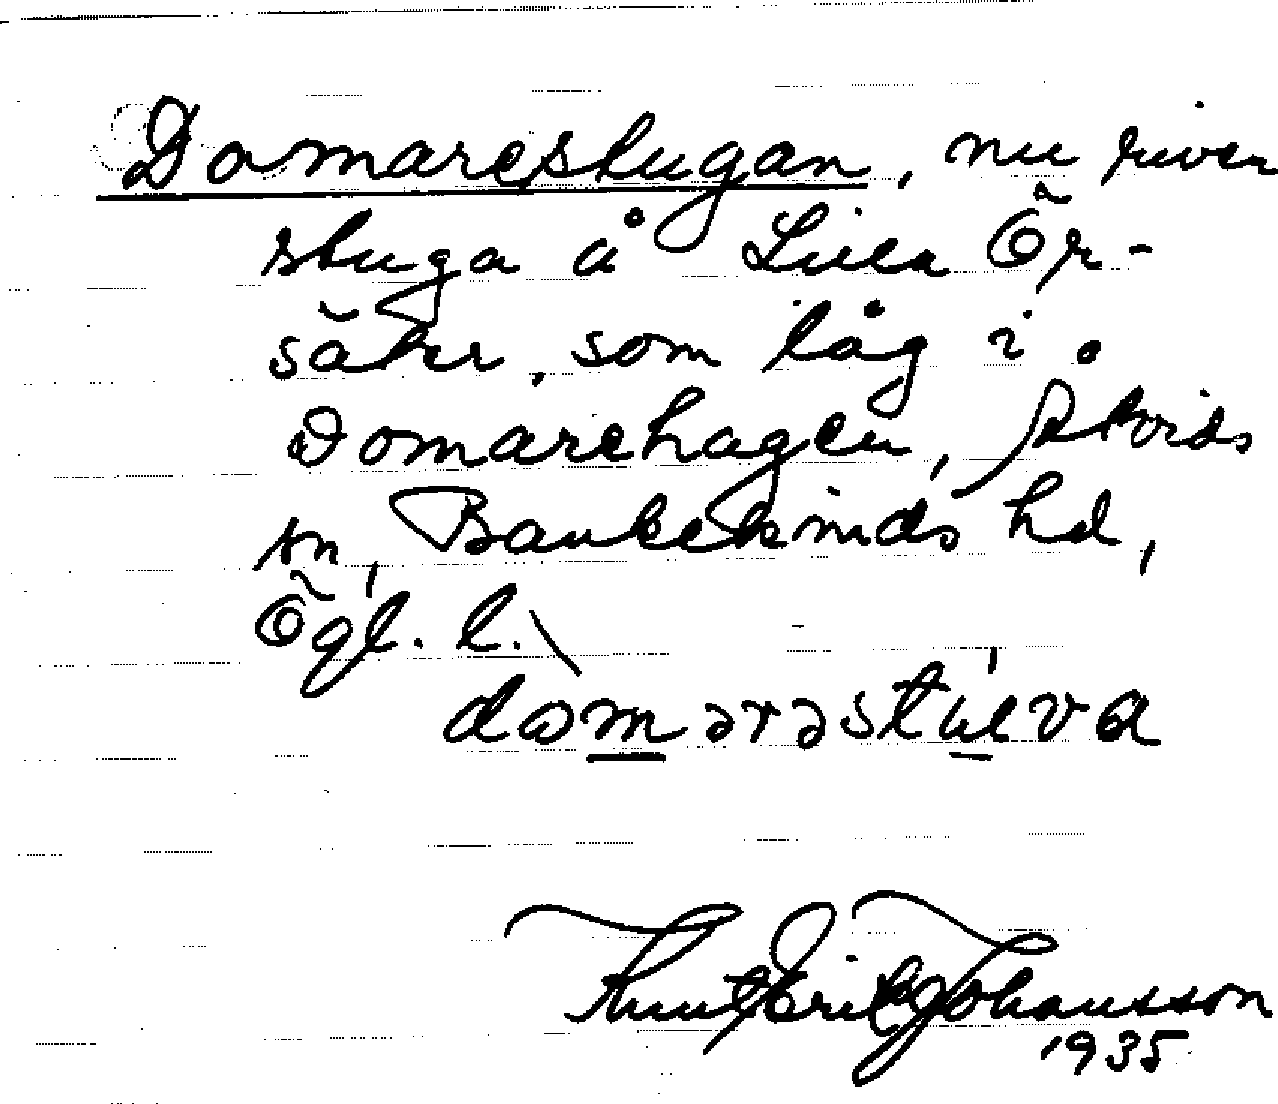 Domarestugan, nu riven
stuga å Lilla Ör-
säter, som låg i
Domarehagen, Åtvids
sn, Bankekinds hd,
Ögl. l.
domərəstuva
Knut Erik Johansson
1935